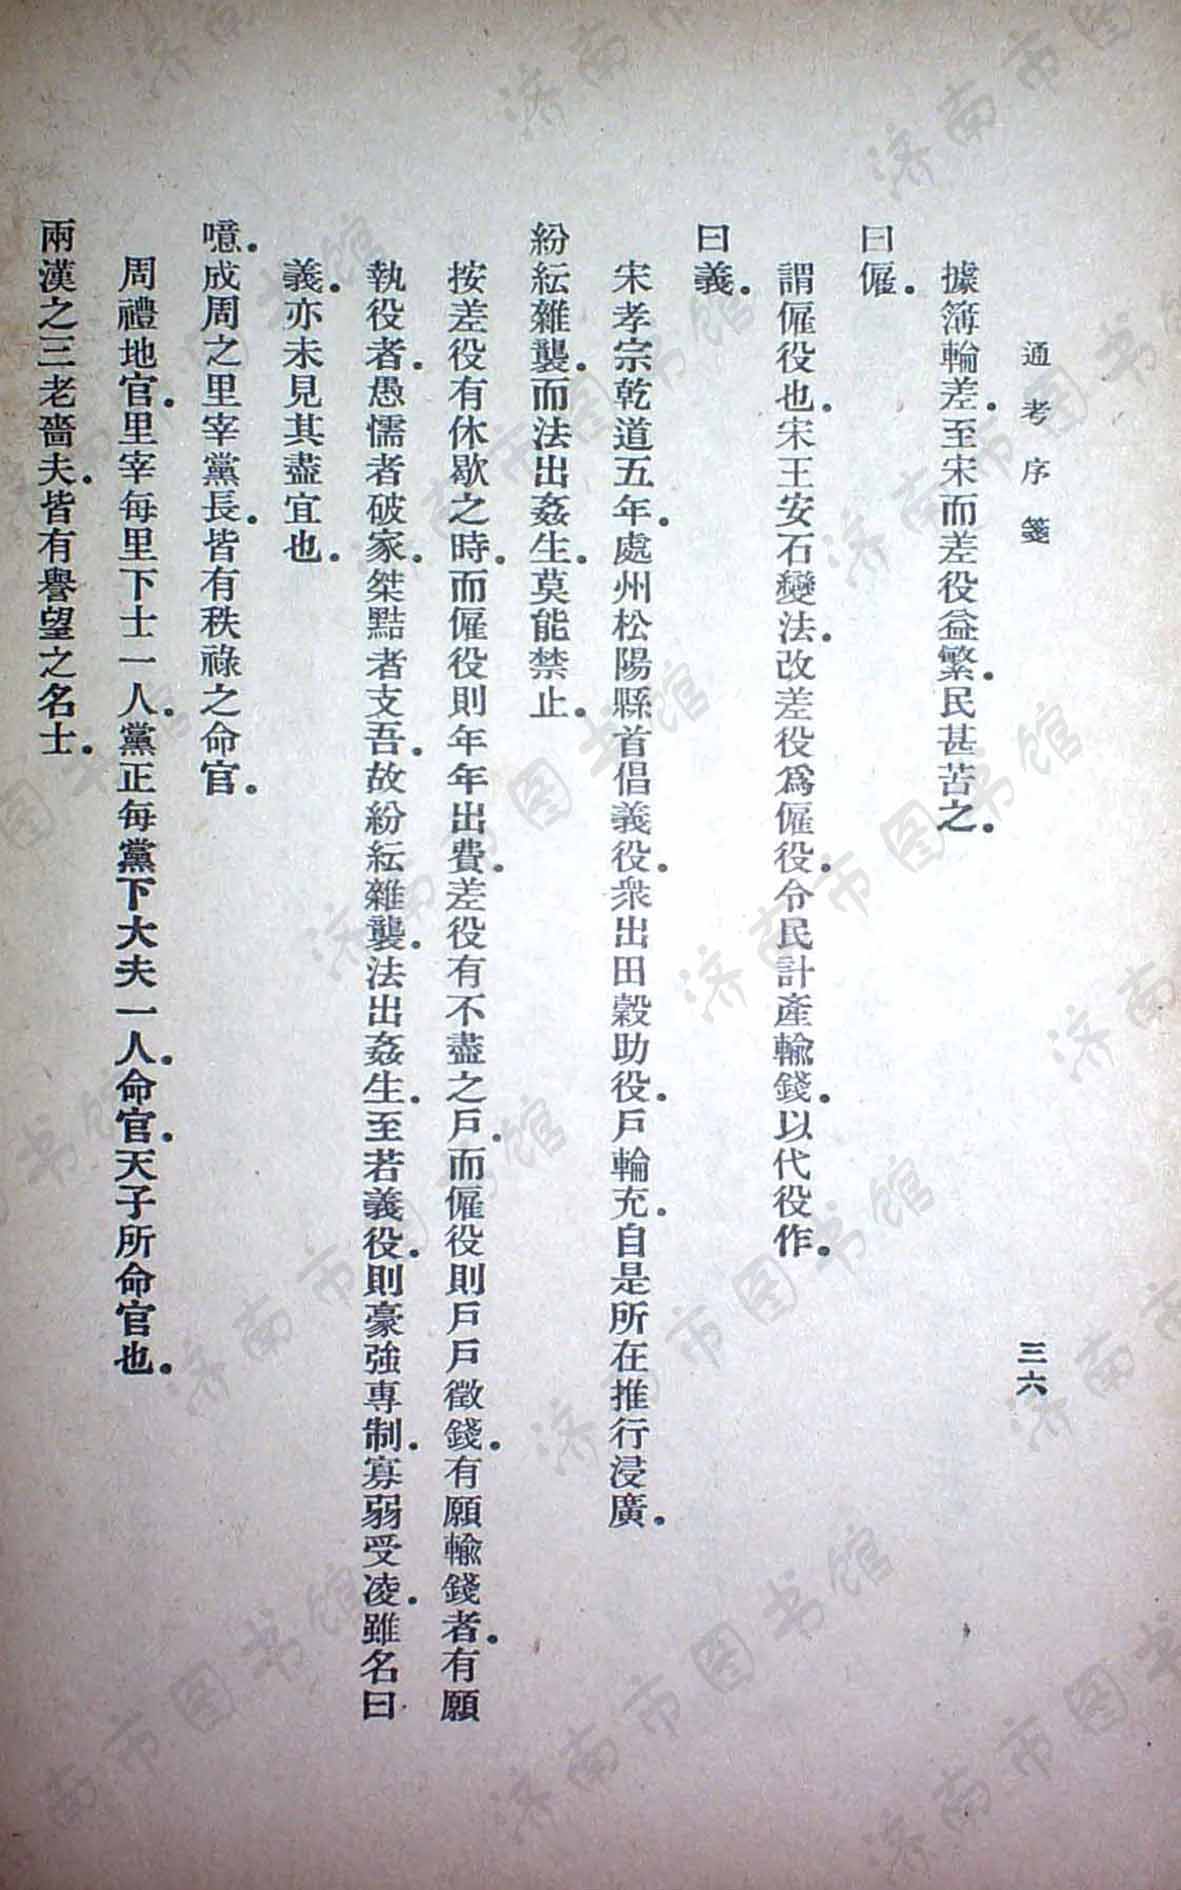 通考序箋
三六
據簿輪差。至宋而差役益繁。民甚苦之。
曰僱。
謂僱役也。宋王安石變法。改差役爲僱役。令民計產輸錢。以代役作。
曰義。
宋孝宗乾道五年。處州松陽縣首倡義役。衆出田穀助役。戶輪充。自是所在推行浸廣。
紛紜雜襲。而法出姦生。莫能禁止。
按差役有休歇之時。而僱役則年年出費。差役有不盡之戶。而僱役則戶戶徵錢。有願輸錢者。有願
執役者。愚懦者破家。桀黠者支吾。故紛紜雜襲。法出姦生。至若義役。則豪強專制。寡弱受凌。雖名曰
義。亦未見其盡宜也。
噫。成周之里宰黨長。皆有秩祿之命官。
周禮地官。里宰每里下士一人。黨正每黨下大夫一人。命官。天子所命官也。
兩漢之三老嗇夫。皆有譽望之名士。
济南市图书馆